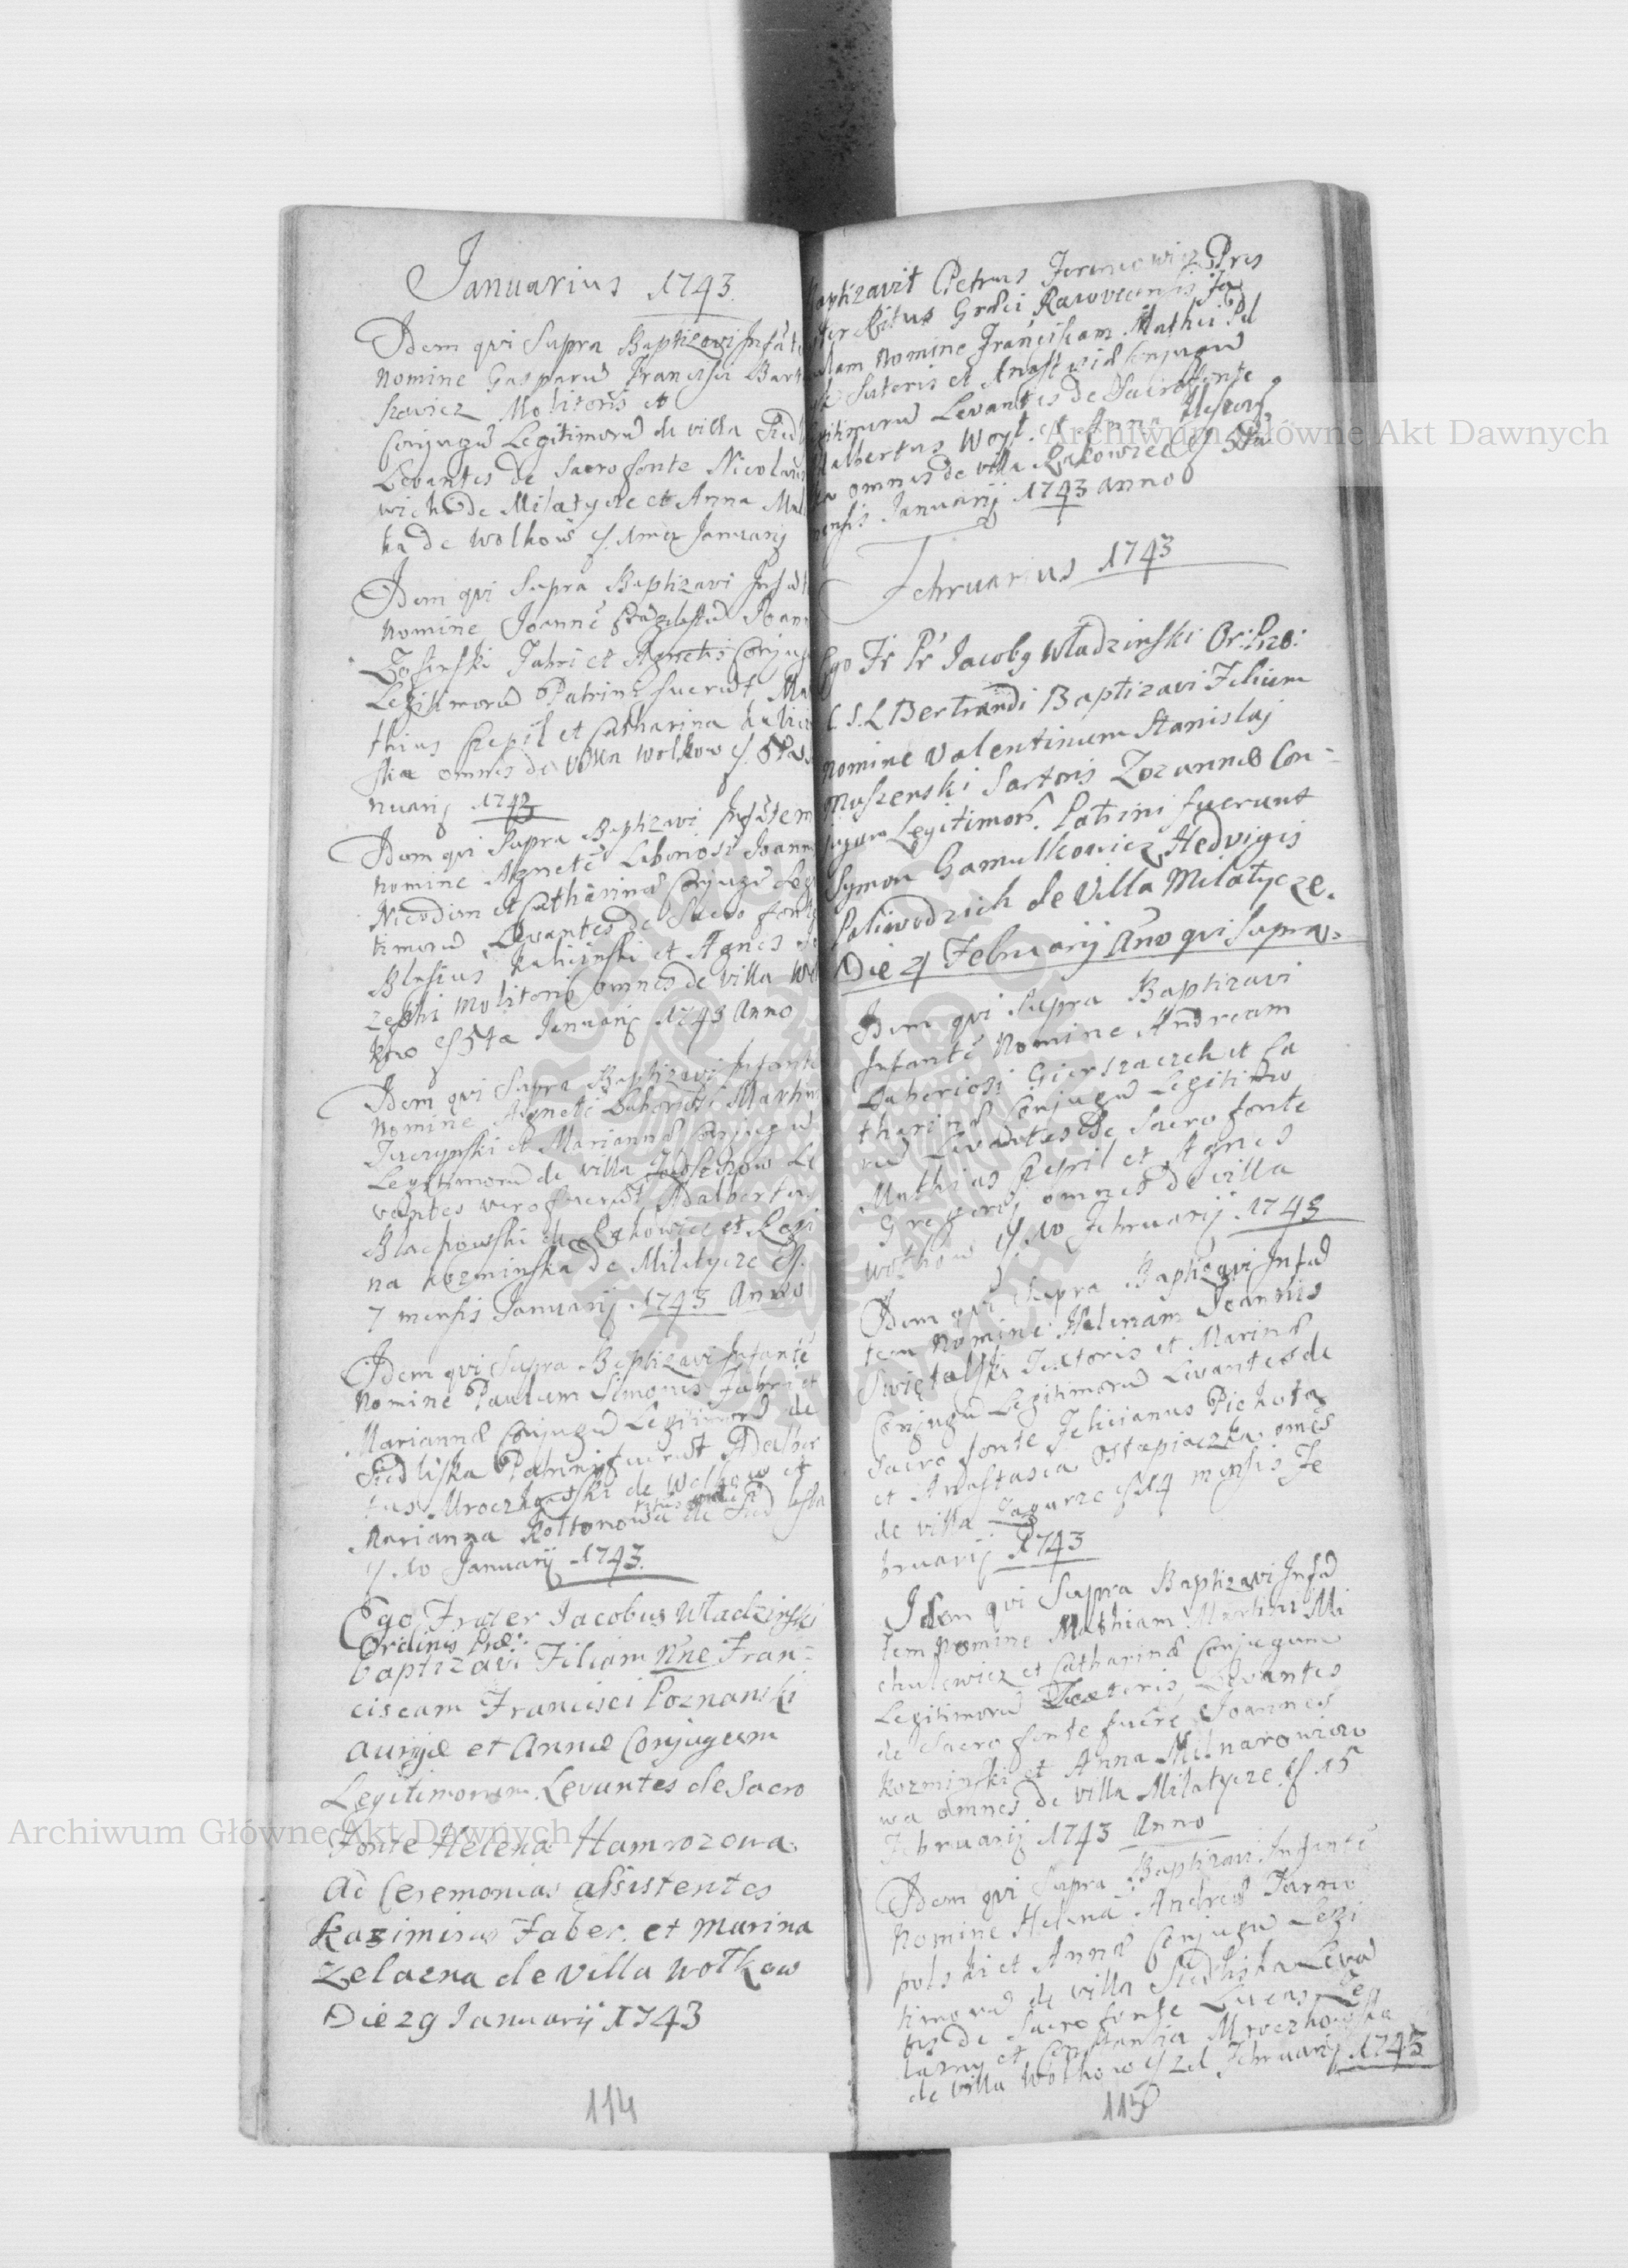 Januarius 1743.
Idem qui Supra Baptizavi Infãtẽ
Nomine Gasparũ Francisci Bart
Molitoris et
Conjugũ Legitimorũ de villa Sied
Levantes de Sacro fonte Nicolaus
wich de Milatycze et Anna Mal
ka de Wolkow Januarij
Idem qui Supra Baptizavi Infãt
Nomine Joannẽ Joan
Zosinski Fabri et Agnetis Conjug
Legitimorũ Patrini fuerũt Ma
thias Czepil et Catharina
ska omnes de villa Wolkow
nuarij 1743
Idem qui Supra Baptizavi Infãtem
Nomine Agnetẽ Laboriosi Joann
Nicodim et Catharinæ Conjugũ Legi
timorũ Levantes de Sacro fonte
Blasius Kulicinski et Agnes
Molitoris omnes de villa Wol
kow 5ta Januarij 1743 Anno
Idem qui Supra Baptizavi Infantẽ
Nomine Agnetẽ Laboriosi Martin
et Mariannæ Conjugũ
Legitimorũ de villa Le
vantes vero fuerũt Adalbertus
Blachowski de et Regi
na Kozminska de Milatycze
7 mensis Januarij 1743 Anno
Idem qui Supra Baptizavi Infantẽ
Nomine Paulum Simonis Fabri et
Mariannæ Conjugũ Legitimorũ de
Siedliska Patrini fuerũt Adalber
tus Mroczkowski de Wolkow et
Marianna Koltonowa de
10 Januarij 1743.
Ego Frater Jacobus Władzinski
Ordinis Præ:
baptizavi Filiam Nne Fran=
ciscam Francisci Poznanski
aurigæ et Annæ Conjugum
Legitimorum. Levantes de Sacro
Fonte Helena Hamrozowa.
Ad Ceremonias assistentes
Kazimirus Faber. et Marina
Zelazna de Villa Wołkow
Die 29 Januarij 1743
114
Baptizavit Petrus Jeremowicz Pres
biter Ritus Græci Rakoviensis
Nomine Franciscam Mathei Pil
Sutoris et Anastasiæ Conjugũ
Legitimorũ Levantes de Sacro fonte
Adalbertus Woyt et Anna
omnes de villa Rakowiec 5ta
mensis Januarij 1743 Anno
Februarius 1743
Ego Fr Pr Jacobg Władzinski Or: Præ:
C S. L Bertrandi Baptizavi Filium
Nomine Valentinum Stanislaj
Maszerski Sartoris Zozannæ Con=
jugum Legitimor. Patrini fuerunt
Symon Gamulkowicz, Hedvigis
Paliwodzich de Villa Milatycze.
Die 4 Februarij Año qui Supra.
Idem qui Supra Baptizavi
Infantẽ Nomine Andream
Laboriosi Gierszaczek et Ca
tharinæ Conjugũ Legitimo
rũ Levãtes de Sacro fonte
Mathias Czepil et Agnes
Gregorij omnes de villa
Wolkow 10 Februarij 1743
Idem qui Supra Baptizavi Infã
tem Nomine Helenam Joannis
Textoris et Marinæ
Conjugũ Legitimorũ Levantes de
Sacro fonte Felicianus Piekota
et Anastasia Ostapiaczka omes
de villa Zagurze 14 mensis Fe
bruarij 1743
Idem qui Supra Baptizavi Infã
tem Nomine Mathiam Martini Mi
chulewicz et Catharinæ Conjugum
Legitimorũ Textoris Levantes
de Sacro fonte fuere Joannes
Kozminski et Anna Milnarowicow
na omnes de villa Milatycze 15
Februarij 1743 Anno
Idem qui Supra Baptizavi Infantẽ
Nomine Helenã Andreæ Tarno
polski et Annæ Conjugũ Legi
timorũ de villa Siedliska Levã
tes de Sacro fonte Lucas Ze
lazny et Constantia Mroczkowska
de villa Wolkow Februarij 1743
115
Archiwum Główne Akt Dawnych
Archiwum Główne Akt Dawnych